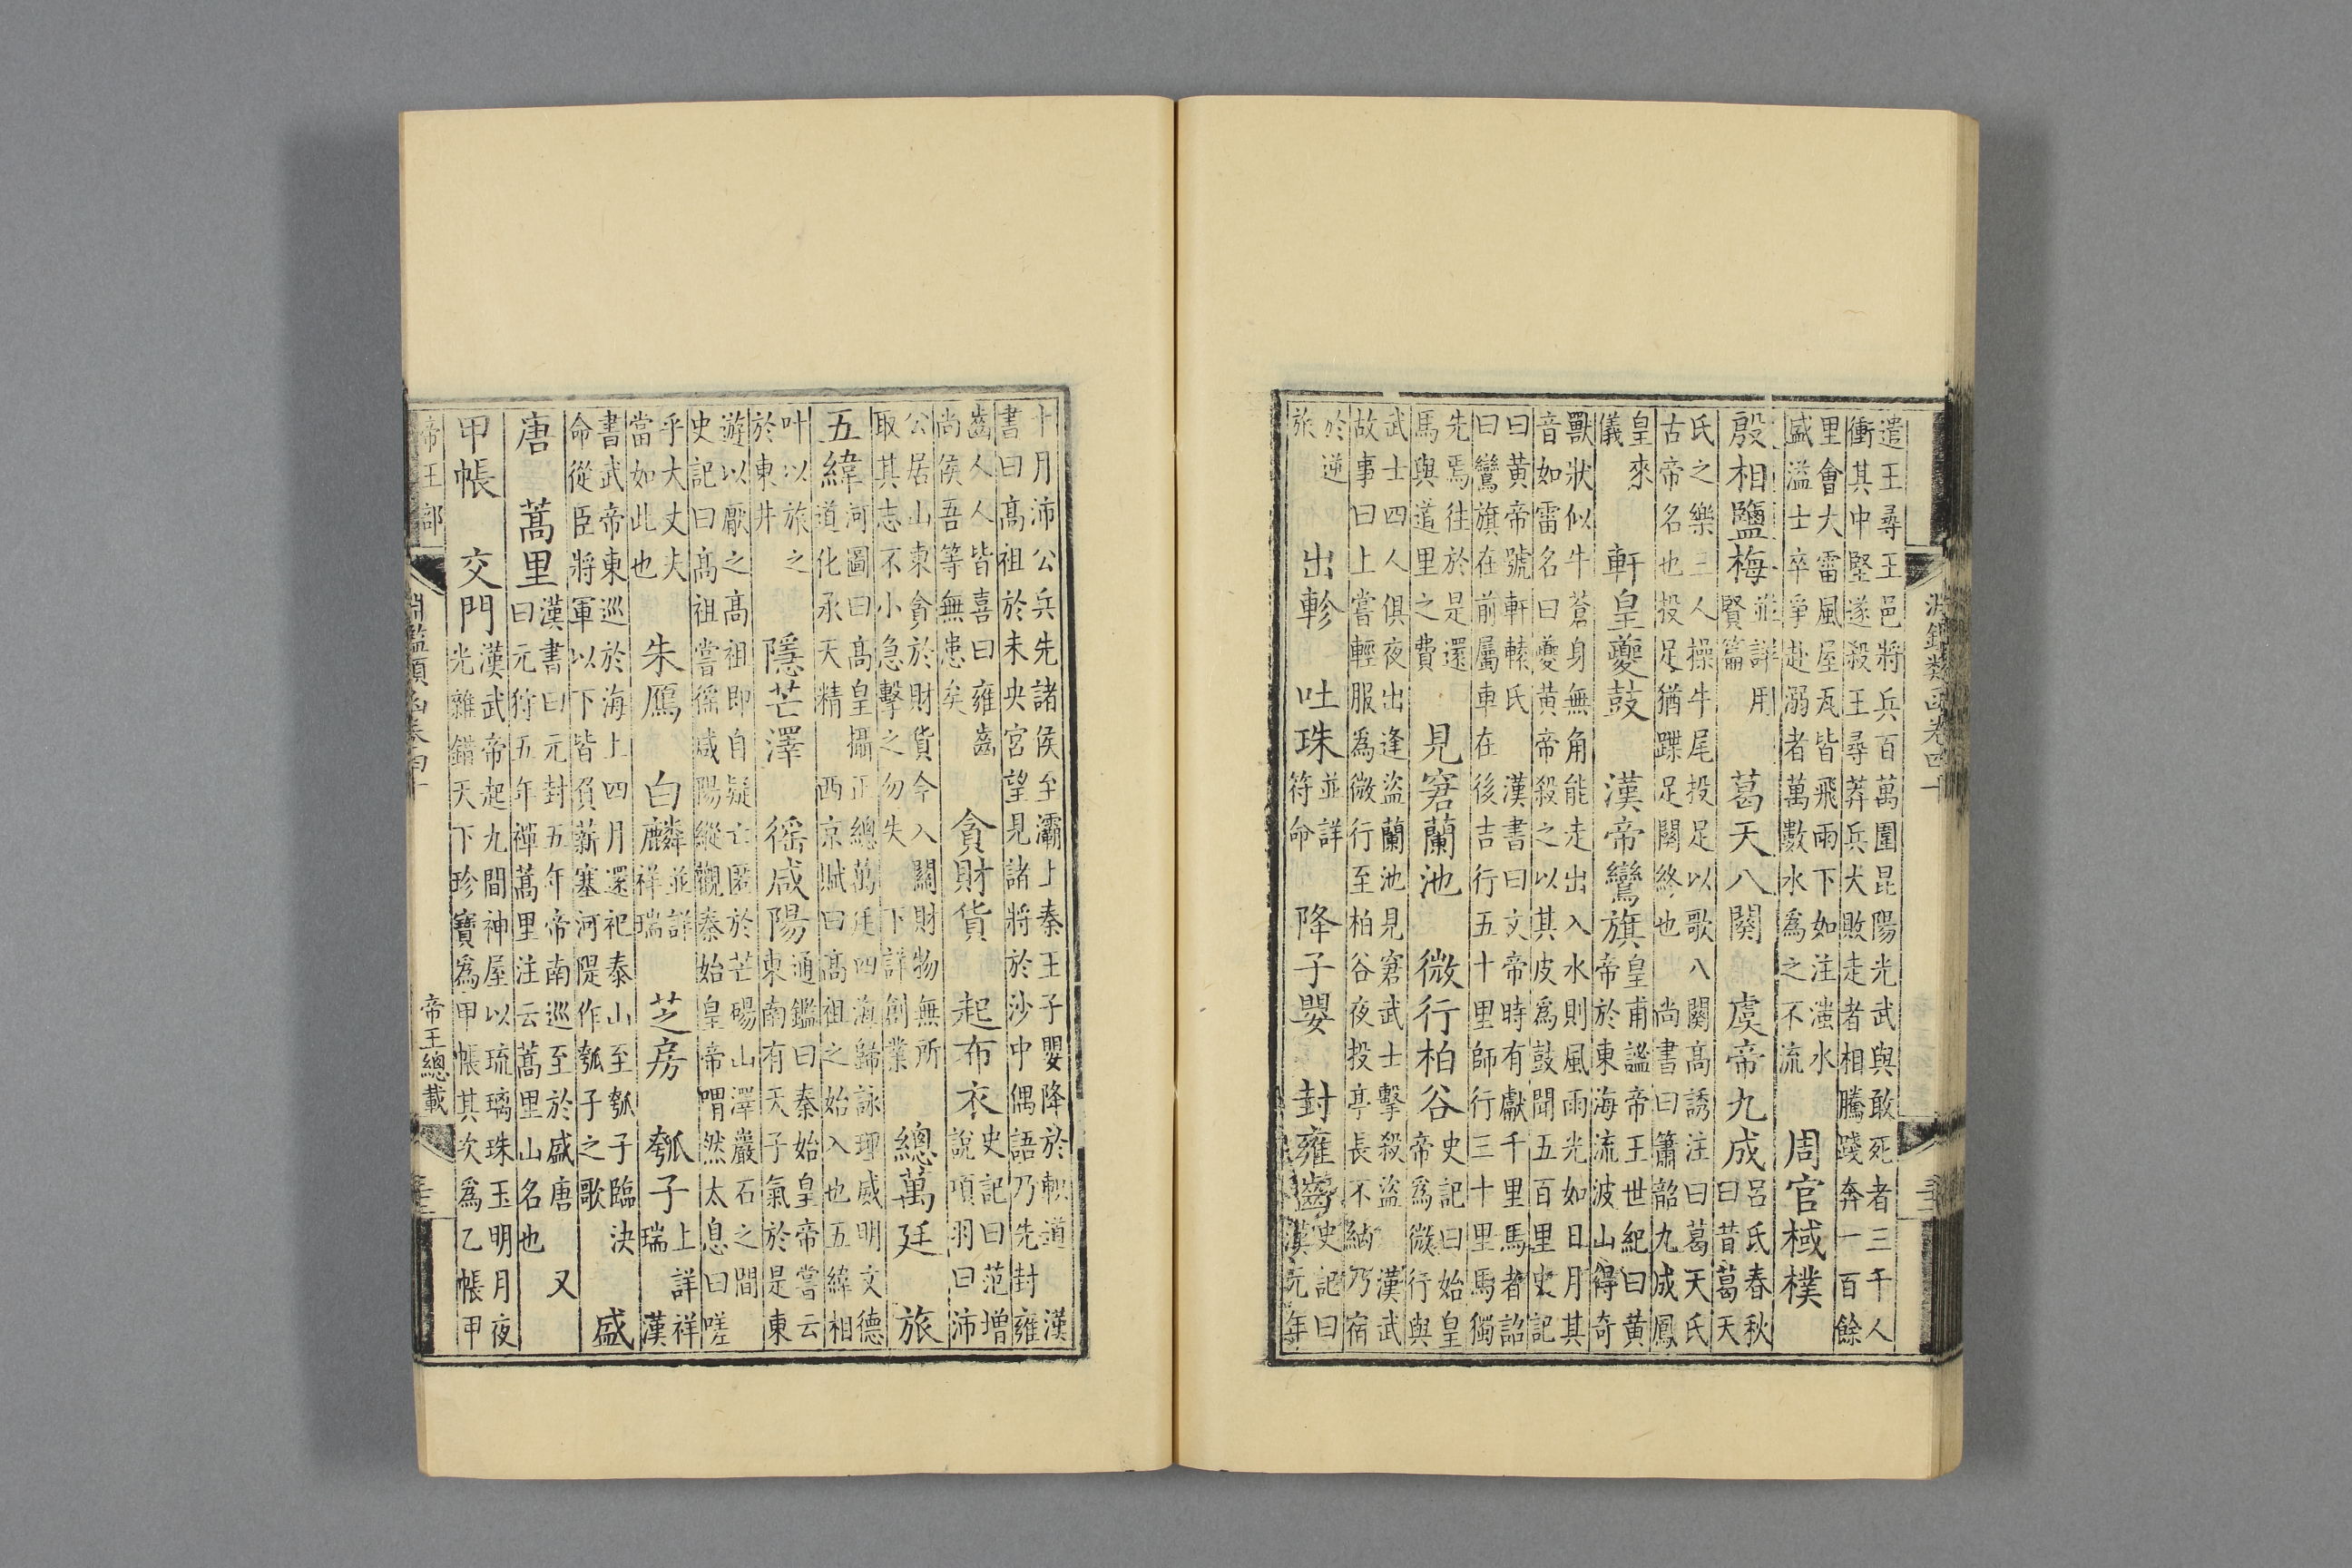 淵鑑類函卷四十
遣王尋王邑將兵百萬圍昆陽光武與敢死者三千人
衝其中堅遂殺王尋莽兵大敗走者相騰踐奔一百餘
里會大雷風屋瓦皆飛雨下如注滍水
盛溢士卒爭赴溺者萬數水爲之不流
周官棫樸
殷相鹽梅
並詳用
賢篇
葛天八闋 虞帝九成
呂氏春秋
曰昔葛天
氏之樂三人操牛尾投足以歌八闋高誘注曰葛天氏
古帝名也投足猶蹀足闋終也 尚書曰簫韶九成鳳
皇來
儀
軒皇夔鼓 漢帝鸞旗
皇甫謐帝王世紀曰黄
帝於東海流波山得奇
獸狀似牛蒼身無角能走出入水則風雨光如日月其
音如雷名曰夔黄帝殺之以其皮爲鼓聞五百里史記
曰黄帝號軒轅氏 漢書曰文帝時有獻千里馬者詔
曰鸞旗在前屬車在後吉行五十里師行三十里馬獨
先焉往於是還
馬與道里之費
見窘蘭池 微行柏谷
史記曰始皇
帝爲微行與
武士四人俱夜出逢盜蘭池見窘武士擊殺盜 漢武
故事曰上嘗輕服爲微行至柏谷夜投亭長不納乃宿
於逆
旅
出軫 吐珠
並詳
符命
降子嬰 封雍齒
史記曰
漢元年
十月沛公兵先諸侯至灞上秦王子嬰降於軹道 漢
書曰高祖於未央宮望見諸將於沙中偶語乃先封雍
齒人人皆喜曰雍齒
尚侯吾等無患矣
貪財貨 起布衣
史記曰范增
說項羽曰沛
公居山東貪於財貨今入關財物無所
取其志不小急擊之勿失 下詳創業
總萬廷 旅
五緯
河圖曰高皇攝正總萬廷四海歸詠理威明文德
道化承天精 西京賦曰高祖之始入也五緯相
叶以旅之
於東井
隱芒澤 徭咸陽
通鑑曰秦始皇帝嘗云
東南有天子氣於是東
遊以厭之高祖即自疑亡匿於芒碭山澤巖石之間
史記曰高祖嘗徭咸陽縱觀秦始皇帝喟然太息曰嗟
乎大丈夫
當如此也
朱鴈 白麟
並詳
祥瑞
芝房 瓠子
上詳祥
瑞 漢
書武帝東巡於海上四月還祀泰山至瓠子臨決
命從臣將軍以下皆負薪塞河隄作瓠子之歌
盛
唐 蒿里
漢書曰元封五年帝南巡至於盛唐 又
曰元狩五年禪蒿里注云蒿里山名也
甲帳 交門
漢武帝起九間神屋以琉璃珠玉明月夜
光雜錯天下珍寶爲甲帳其次爲乙帳甲
帝王部 淵鑑類函卷四十 帝王總載